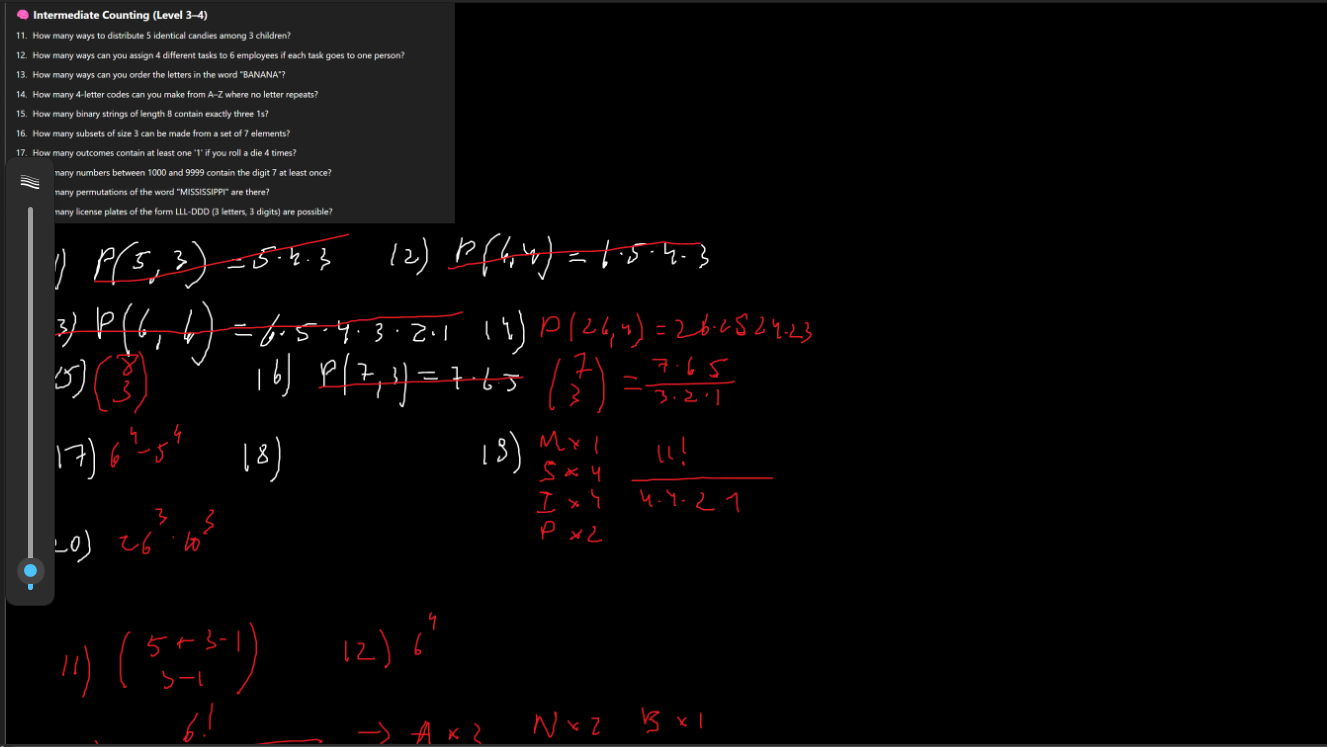 Intermediate Counting (Level 3–4)
11. How many ways to distribute 5 identical candies among 3 children?
12. How many ways can you assign 4 different tasks to 6 employees if each task goes to one person?
13. How many ways can you order the letters in the word "BANANA"?
14. How many 4-letter codes can you make from A–Z where no letter repeats?
15. How many binary strings of length 8 contain exactly three 1s?
16. How many subsets of size 3 can be made from a set of 7 elements?
17. How many outcomes contain at least one '1' if you roll a die 4 times?
many numbers between 1000 and 9999 contain the digit 7 at least once?
many permutations of the word "MISSISSIPPI" are there?
many license plates of the form LLL-DDD (3 letters, 3 digits) are possible?
1) P(5, 3) = 5·4·3 12) P(6,4) = 6·5·4·3
3) P(6, 6) = 6·5·4·3·2·1 14) P(26,4) = 26·25 24·23
15) (8 3) 16) P(7,3) = 7·6·5 (7 3) = 7·6·5 / 3·2·1
17) 6^4 - 5^4 18) 19) M x 1 11!
S x 4
I x 4 4·4·2 1
P x 2
20) 26^3 · 10^3
11) (5 + 3-1 3-1) 12) 6^4
6! → A x 2 N x 2 B x 1